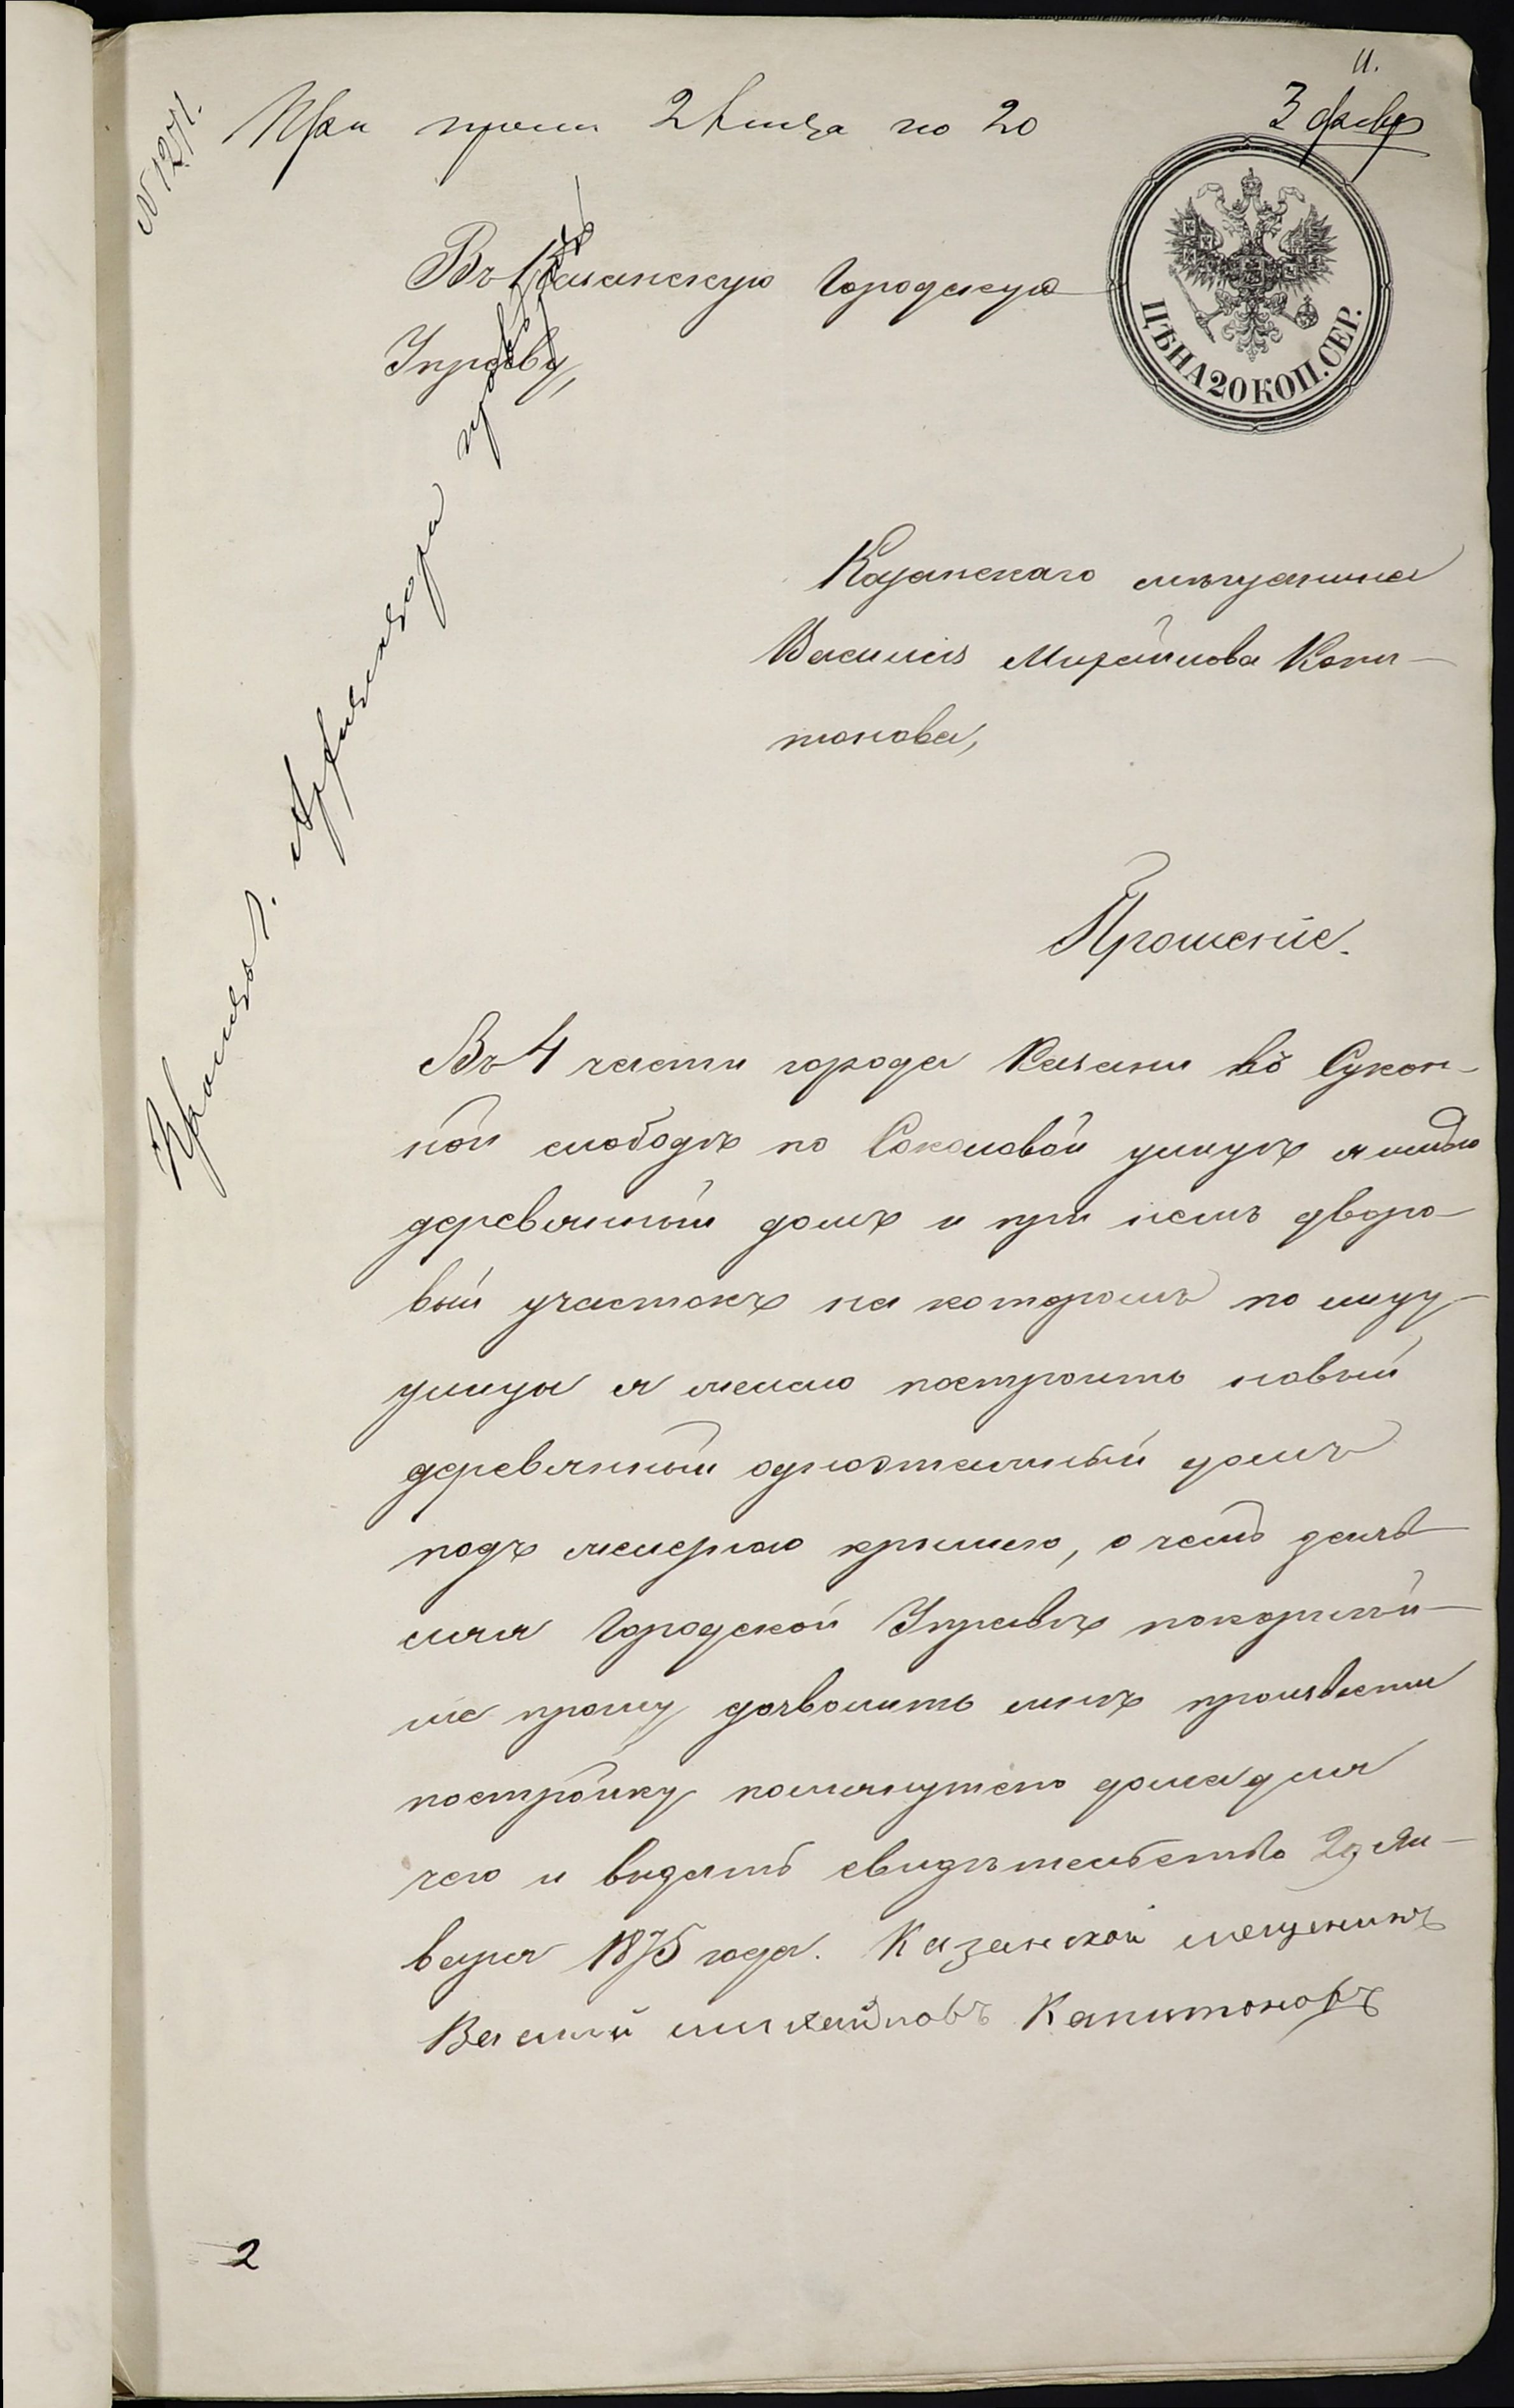 11.
N 1271.
При прош 2 листа по 20
3 февр
Въ Казанскую Городскую
Управу,
ЦѢНА 20 КОП. СЕР.
Казанскаго мѣщанина
Василія Михайлова Капи-
тонова,
Прошеніе.
Просить г. Архитектора
Въ 4 части города Казани въ Сукон-
ной слободѣ по Соколовой улицѣ я имѣю
деревянный домъ и при немъ дворо-
вый участокъ на которомъ по лицу
улицы я желаю построить новый
деревянный одноэтажный домъ
подъ железною крышею, о чемъ заявъ
ляя Городской Управѣ покорнѣй-
ше прошу дозволить мнѣ произвести
постройку помянутаго дома для
чего и выдать свидѣтельство 29 Ян-
варя 1875 года. Казанской мещанинъ
Василий михайловъ Капитоновъ
2